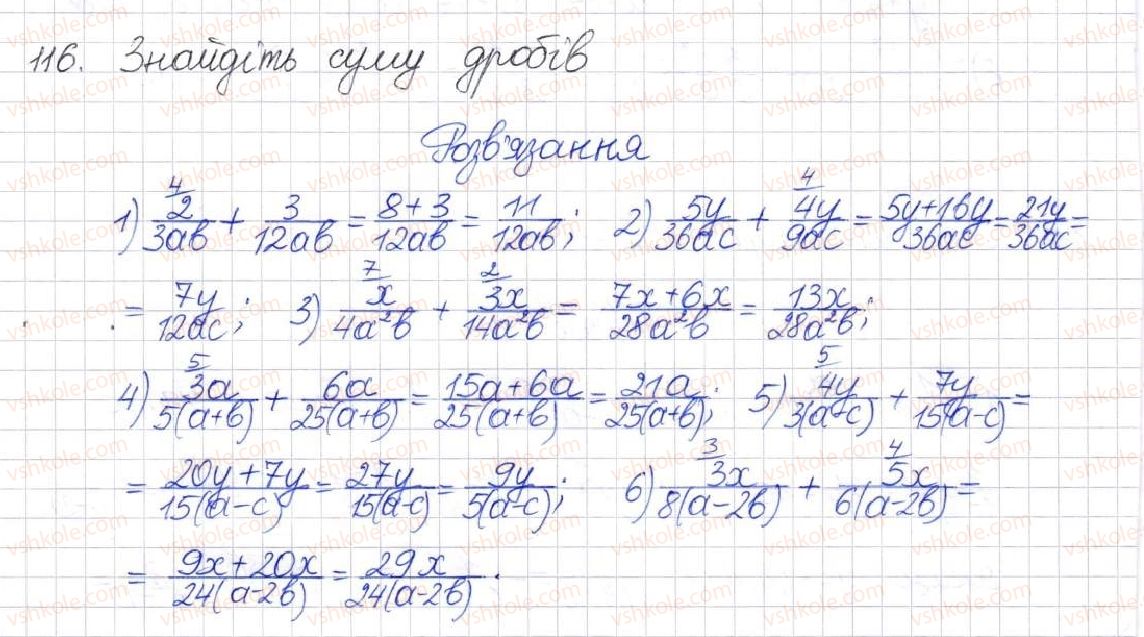 116. Знайдіть суму дробів
Розв'язання
1) 4/ 2/3ab + 3/12ab = 8+3/12ab = 11/12ab; 2) 5y/36ac + 4/ 4y/9ac = 5y+16y/36ac = 21y/36ac =
= 7y/12ac; 3) 7/ x/4a²b + 2/ 3x/14a²b = 7x+6x/28a²b = 13x/28a²b;
4) 5/ 3a/5(a+b) + 6a/25(a+b) = 15a+6a/25(a+b) = 21a/25(a+b); 5) 5/ 4y/3(a-c) + 7y/15(a-c) =
= 20y+7y/15(a-c) = 27y/15(a-c) = 9y/5(a-c); 6) 3/ 3x/8(a-2b) + 4/ 5x/6(a-2b) =
= 9x+20x/24(a-2b) = 29x/24(a-2b).